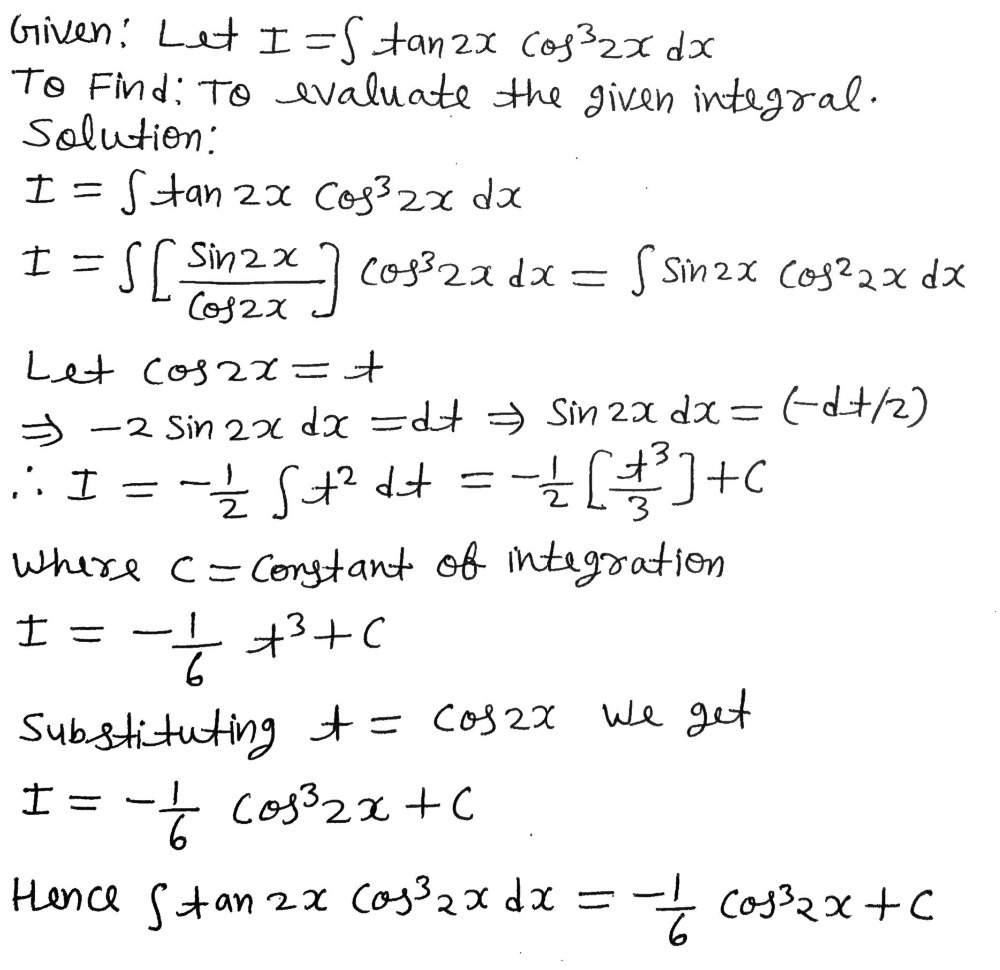 Given: Let I = ∫ tan2x cos³2x dx
To Find: To evaluate the given integral.
Solution:
I = ∫ tan 2x cos³2x dx
I = ∫ [ sin2x / cos2x ] cos³2x dx = ∫ sin2x cos²2x dx
Let cos2x = t
⇒ -2 sin 2x dx = dt ⇒ sin 2x dx = (-dt/2)
∴ I = -1/2 ∫ t² dt = -1/2 [t³/3] + C
Where C = Constant of integration
I = -1/6 t³ + C
Substituting t = cos2x we get
I = -1/6 cos³2x + C
Hence ∫ tan 2x cos³2x dx = -1/6 cos³2x + C